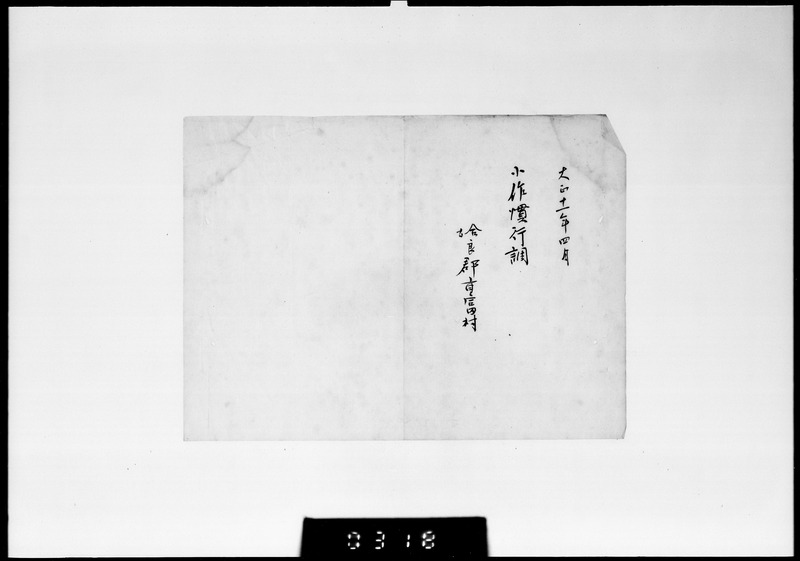 大正十一年四月
小作慣行調
姶良郡重富村
0318